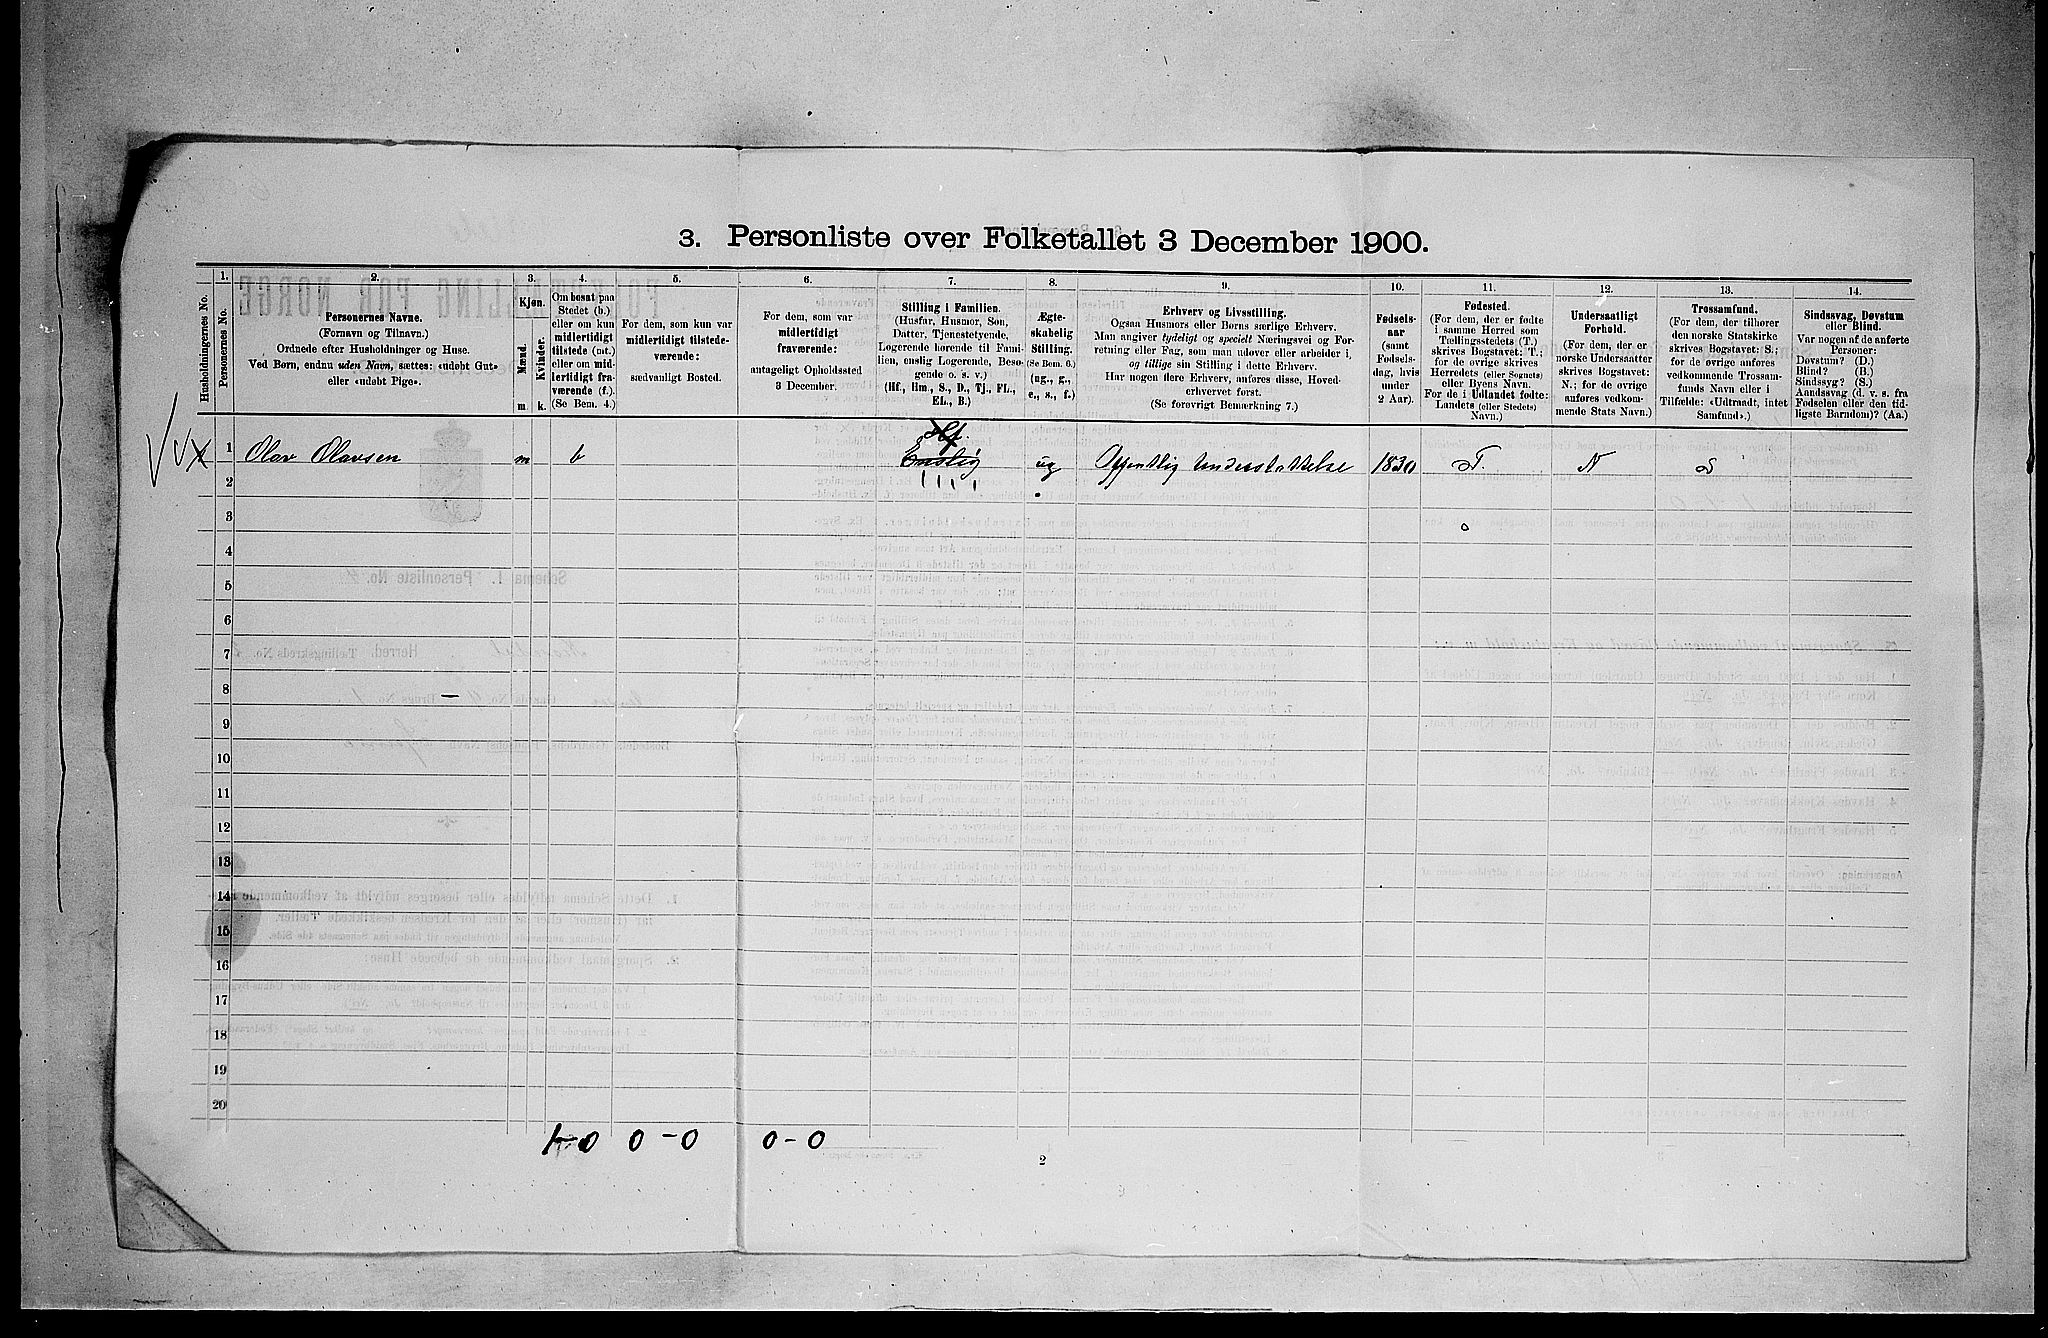 3. Personliste over Folketallet 3 December 1900.
1.
Husholdningernes No.
Personernes No.
2.
Personernes Navne.
(Fornavn og Tilnavn.)
Ordnede efter Husholdninger og Huse.
Ved Børn, endnu uden Navn, sættes: «udøbt Gut»
eller «udøbt Pige».
3.
Kjøn.
Mænd.
Kvinder.
m. k.
4.
Om bosat paa
Stedet (b.)
eller om kun
midlertidigt
tilstede (mt.)
eller om mid-
lertidigt fra-
værende (f.)
(Se Bem. 4.)
5.
For dem, som kun var
midlertidigt tilstede-
værende:
sædvanligt Bosted.
6.
For dem, som var
midlertidigt
fraværende:
antageligt Opholdssted
3 December.
7.
Stilling i Familien.
(Husfar, Husmor, Søn,
Datter, Tjenestetyende,
Logerende hørende til Fami-
lien, enslig Logerende, Besø-
gende o. s. v.)
(Hf., Hm., S., D., Tj., FL.,
EL., B.)
8.
Ægte-
skabelig
Stilling.
(Se Bem. 6.)
(ug., g.,
e., s., f.)
9.
Erhverv og Livsstilling.
Ogsaa Husmors eller Børns særlige Erhverv.
Man angiver tydeligt og specielt Næringsvei og For-
retning eller Fag, som man udøver eller arbeider i,
og tillige sin Stilling i dette Erhverv.
Har nogen flere Erhverv, anføres disse, Hoved-
erhvervet først.
(Se forøvrigt Bemærkning 7.)
10.
Fødsels-
aar
(samt
Fødsels-
dag, hvis
under
2 Aar).
11.
Fødested.
(For dem, der er fødte
i samme Herred som
Tællingsstedets (T.)
skrives Bogstavet: T.;
for de øvrige skrives
Herredets (eller Sognets)
eller Byens Navn.
For de i Udlandet fødte:
Landets (eller Stedets)
Navn.)
12.
Undersaatligt
Forhold.
(For dem, der er
norske Undersaatter
skrives Bogstavet:
N.; for de øvrige
anføres vedkom-
mende Stats Navn.)
13.
Trossamfund.
(For dem, der tilhører
den norske Statskirke
skrives Bogstavet: S.;
for de øvrige anføres
vedkommende Trossam-
funds Navn eller i
Tilfælde: «Udtraadt, intet
Samfund».)
14.
Sindssvag, Døvstum
eller Blind.
Var nogen af de anførte
Personer:
Døvstum? (D.)
Blind? (B.)
Sindssyg? (S.)
Aandssvag (d. v. s. fra
Fødselen eller den tid-
ligste Barndom)? (Aa.)
Hf.
1 Olav Olavsen m b Enslig ug Offentlig Understøttelse 1830 T. N S
2
3
4
5
6
7
8
9
10
11
12
13
14
15
16
17
18
19
20
1-0 0-0 0-0
2